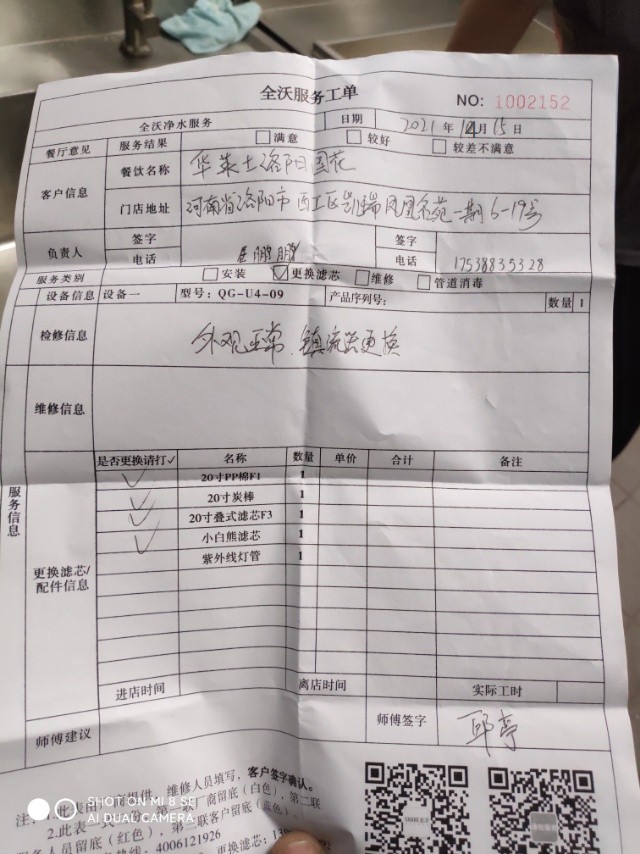 全沃服务工单
NO: 1002152
全沃净水服务 日期 2021年 14月 15日
餐厅意见 服务结果 满意 较好 较差不满意
客户信息 餐饮名称 华莱士洛阳国花
门店地址 河南省洛阳市西工区凯瑞凤凰名苑一期6-19号
负责人 签字 签字
电话 鹏鹏 电话 17538835328
服务类别 安装 更换滤芯 维修 管道消毒
设备信息 设备一 型号: QG-U4-09 产品序列号: 数量 1
检修信息 外观正常、镇流器更换
维修信息
服务信息
是否更换请打✓ 名称 数量 单价 合计 备注
✓ 20寸PP棉F1 1
✓ 20寸炭棒 1
✓ 20寸叠式滤芯F3 1
✓ 小白熊滤芯 1
紫外线灯管 1
更换滤芯/
配件信息
进店时间 离店时间 实际工时
师傅建议 师傅签字 邱亭
商提供, 维修人员填写, 客户签字确认。
2.此表一式 第一联厂商留底(白色), 第二联
务人员留底(红色), 第三联客户留底(蓝色),
热线: 4006121926 更换滤芯: 13
SHOT ON MI 8 SE
AI DUAL CAMERA